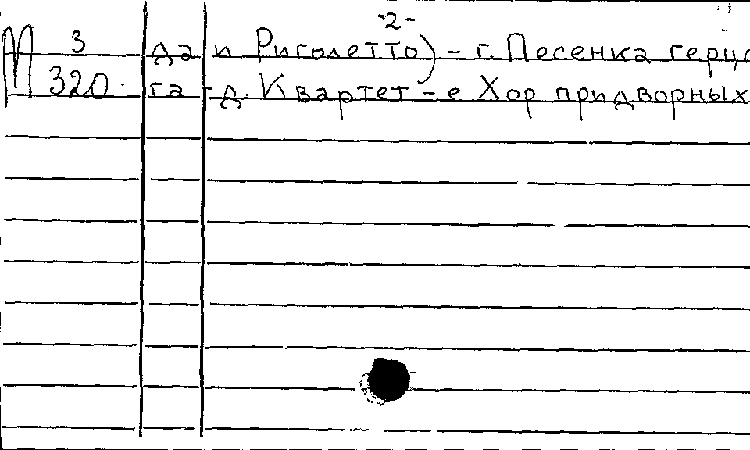 -2-
М 3 да и Риголетто) - г. Песенка герцо
320 га - д. Квартет - е Хор придворных